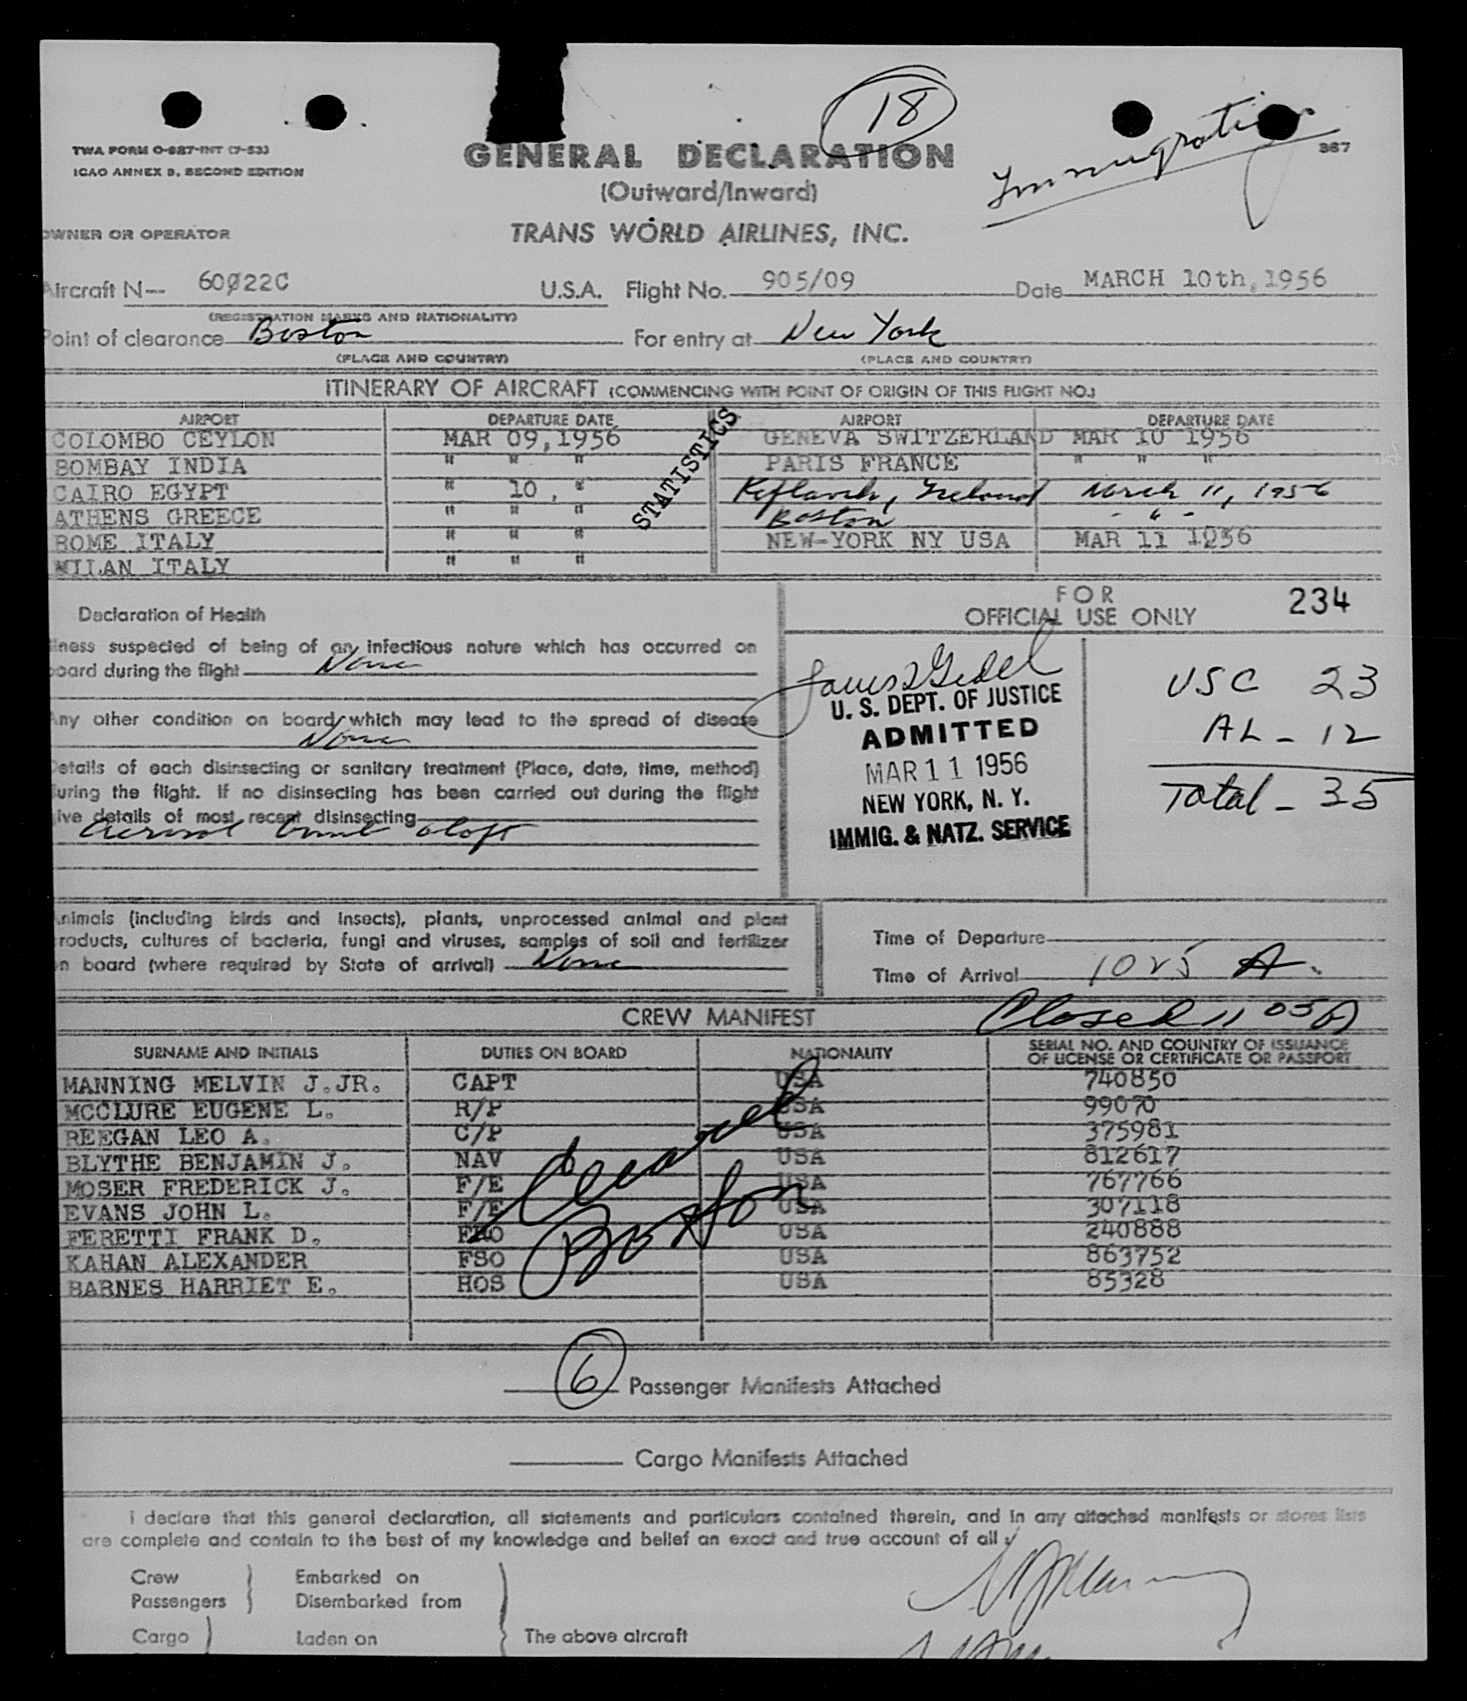 18
Immigration
TWA FORM O-927-INT (7-53)
ICAO ANNEX 9, SECOND EDITION
GENERAL DECLARATION
367
(Outward/Inward)
OWNER OR OPERATOR
TRANS WORLD AIRLINES, INC.
Aircraft N— 60022C U.S.A. Flight No. 905/09 Date MARCH 10th, 1956
(REGISTRATION MARKS AND NATIONALITY)
Point of clearance Boston For entry at New York
(PLACE AND COUNTRY) (PLACE AND COUNTRY)
ITINERARY OF AIRCRAFT (COMMENCING WITH POINT OF ORIGIN OF THIS FLIGHT NO.)
AIRPORT DEPARTURE DATE AIRPORT DEPARTURE DATE
COLOMBO CEYLON MAR 09,1956 GENEVA SWITZERLAND MAR 10 1956
BOMBAY INDIA " " " PARIS FRANCE " " "
CAIRO EGYPT " 10, " Keflavik, March 11, 1956
ATHENS GREECE " " " Boston - " -
ROME ITALY " " " NEW-YORK NY USA MAR 11 1956
MILAN ITALY " " "
STATISTICS
Declaration of Health
FOR
OFFICIAL USE ONLY 234
llness suspected of being of an infectious nature which has occurred on
board during the flight None
Any other condition on board which may lead to the spread of disease
None
Details of each disinsecting or sanitary treatment (Place, date, time, method)
during the flight. If no disinsecting has been carried out during the flight
give details of most recent disinsecting
Aerosol bomb aloft
U. S. DEPT. OF JUSTICE
ADMITTED
MAR 11 1956
NEW YORK, N. Y.
IMMIG. & NATZ. SERVICE
USC 23
AL - 12
Total - 35
Animals (including birds and insects), plants, unprocessed animal and plant
products, cultures of bacteria, fungi and viruses, samples of soil and fertilizer
on board (where required by State of arrival) None
Time of Departure
Time of Arrival 1025 A.
CREW MANIFEST Closed 11 05 A
SURNAME AND INITIALS DUTIES ON BOARD NATIONALITY SERIAL NO. AND COUNTRY OF ISSUANCE
OF LICENSE OR CERTIFICATE OR PASSPORT
MANNING MELVIN J.JR. CAPT USA 740850
MCCLURE EUGENE L. R/P USA 99070
REEGAN LEO A. C/P USA 375981
BLYTHE BENJAMIN J. NAV USA 812617
MOSER FREDERICK J. F/E USA 767766
EVANS JOHN L. F/E USA 307118
FERETTI FRANK D. USA 240888
KAHAN ALEXANDER FSO USA 863752
BARNES HARRIET E. HOS USA 85328
Cleared
Boston
6 Passenger Manifests Attached
Cargo Manifests Attached
I declare that this general declaration, all statements and particulars contained therein, and in any attached manifests or stores lists
are complete and contain to the best of my knowledge and belief an exact and true account of all
Crew Embarked on
Passengers Disembarked from
Cargo Laden on The above aircraft